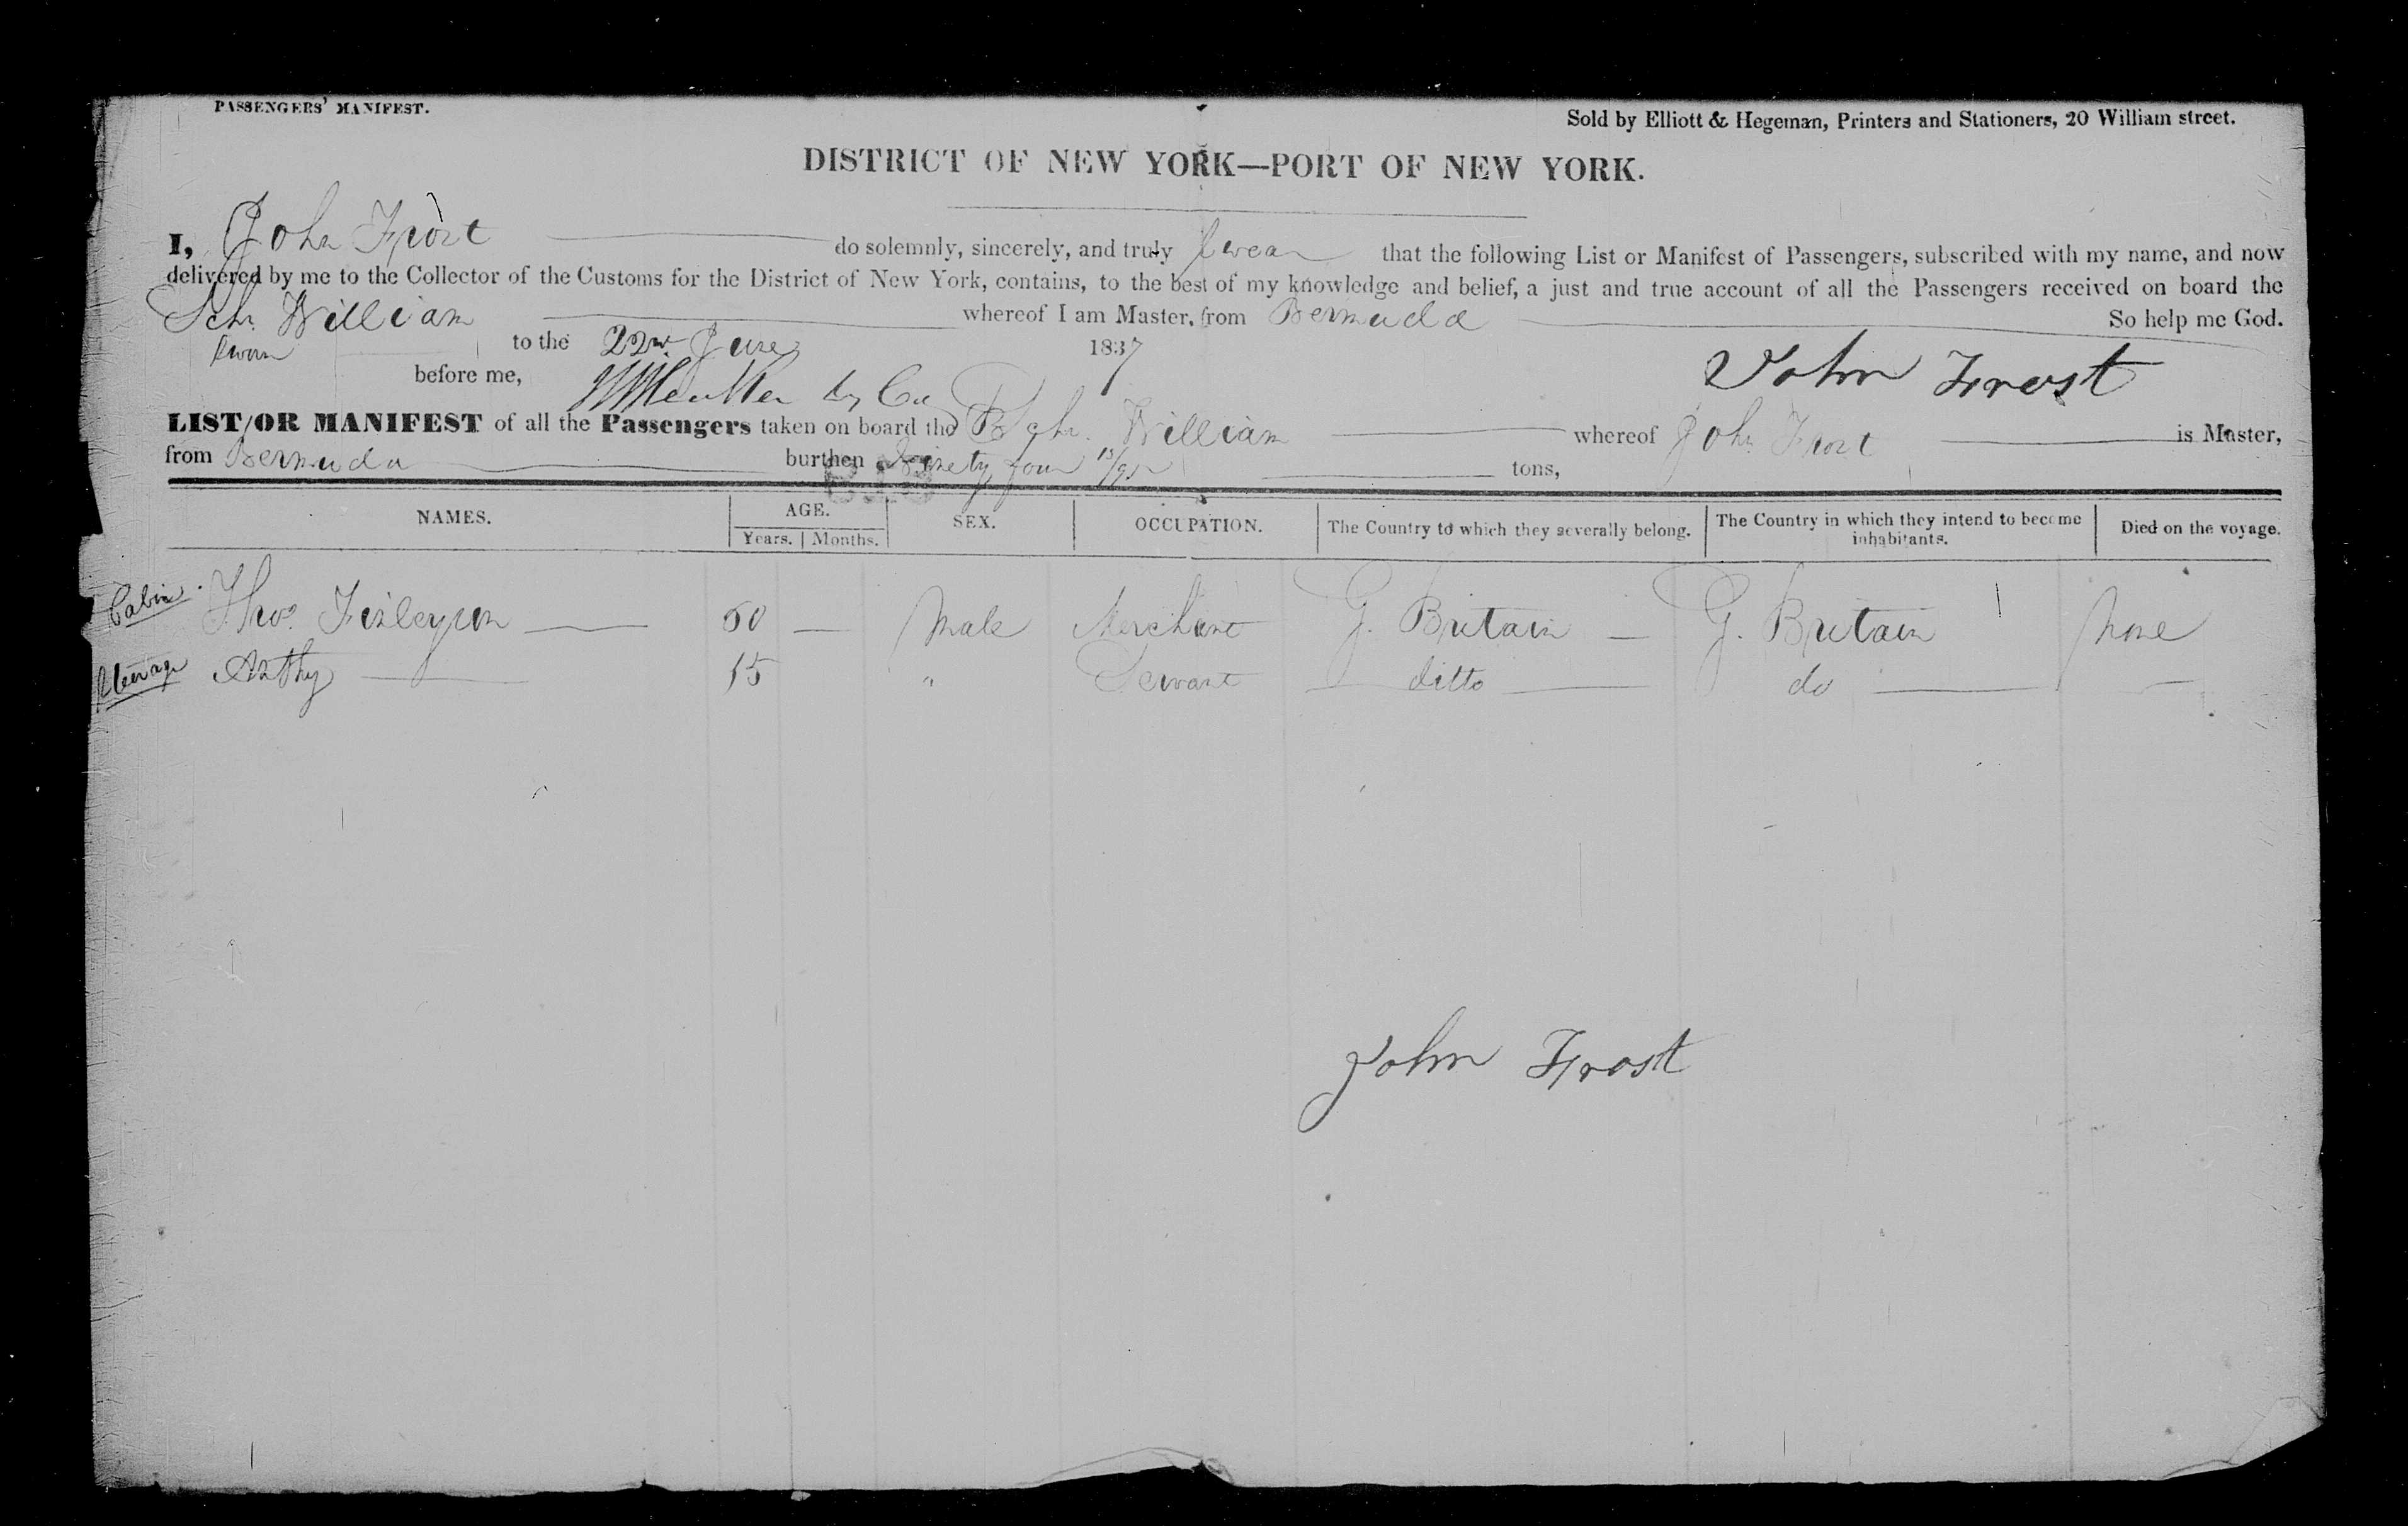 PASSENGERS' MANIFEST.
Sold by Elliott & Hegeman, Printers and Stationers, 20 William street.
DISTRICT OF NEW YORK—PORT OF NEW YORK.
I, John Frost do solemnly, sincerely, and truly swear that the following List or Manifest of Passengers, subscribed with my name, and now
delivered by me to the Collector of the Customs for the District of New York, contains, to the best of my knowledge and belief, a just and true account of all the Passengers received on board the
Schr. William whereof I am Master, from Bermuda So help me God.
Sworn to the 22nd June 1837
John Frost
before me,
LIST OR MANIFEST of all the Passengers taken on board the B Schr. William whereof John Frost is Master,
from Bermuda burthen Ninety four 13/95 tons,
NAMES. AGE. SEX. OCCUPATION. The Country to which they severally belong. The Country in which they intend to become inhabitants. Died on the voyage.
Years. Months.
Cabin Thos. Finleyson — 50 — Male Merchant G. Britain — G. Britain None
Steerage Anthy — 15 " Servant — ditto — do — —
John Frost